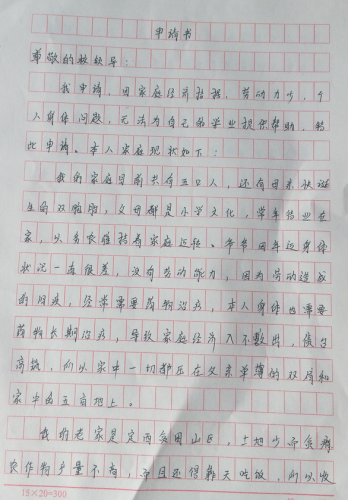 申请书
尊敬的校领导：
我申请，因家庭经济拮据，劳动力少，个
人身体问题，无法为自己的学业提供帮助，特
此申请。本人家庭现状如下：
我的家庭目前共有五口人，还有目未快诞
生的双胞胎，父母都是小学文化，常年结业在
家，以务农维持着家庭运转。爷爷因年迈身体
状况一直很差，没有劳动能力，因为劳动造成
的旧疾，经常需要药物治疗，本人身体也需要
药物长期治疗，导致家庭经济入不敷出，债台
高筑，所以家中一切都压在父亲单薄的双肩和
家中的五亩地上。
我的老家是定西贫困山区，土地少而贫瘠
农作物产量不高，而且还得靠天吃饭，所以收
15×20=300